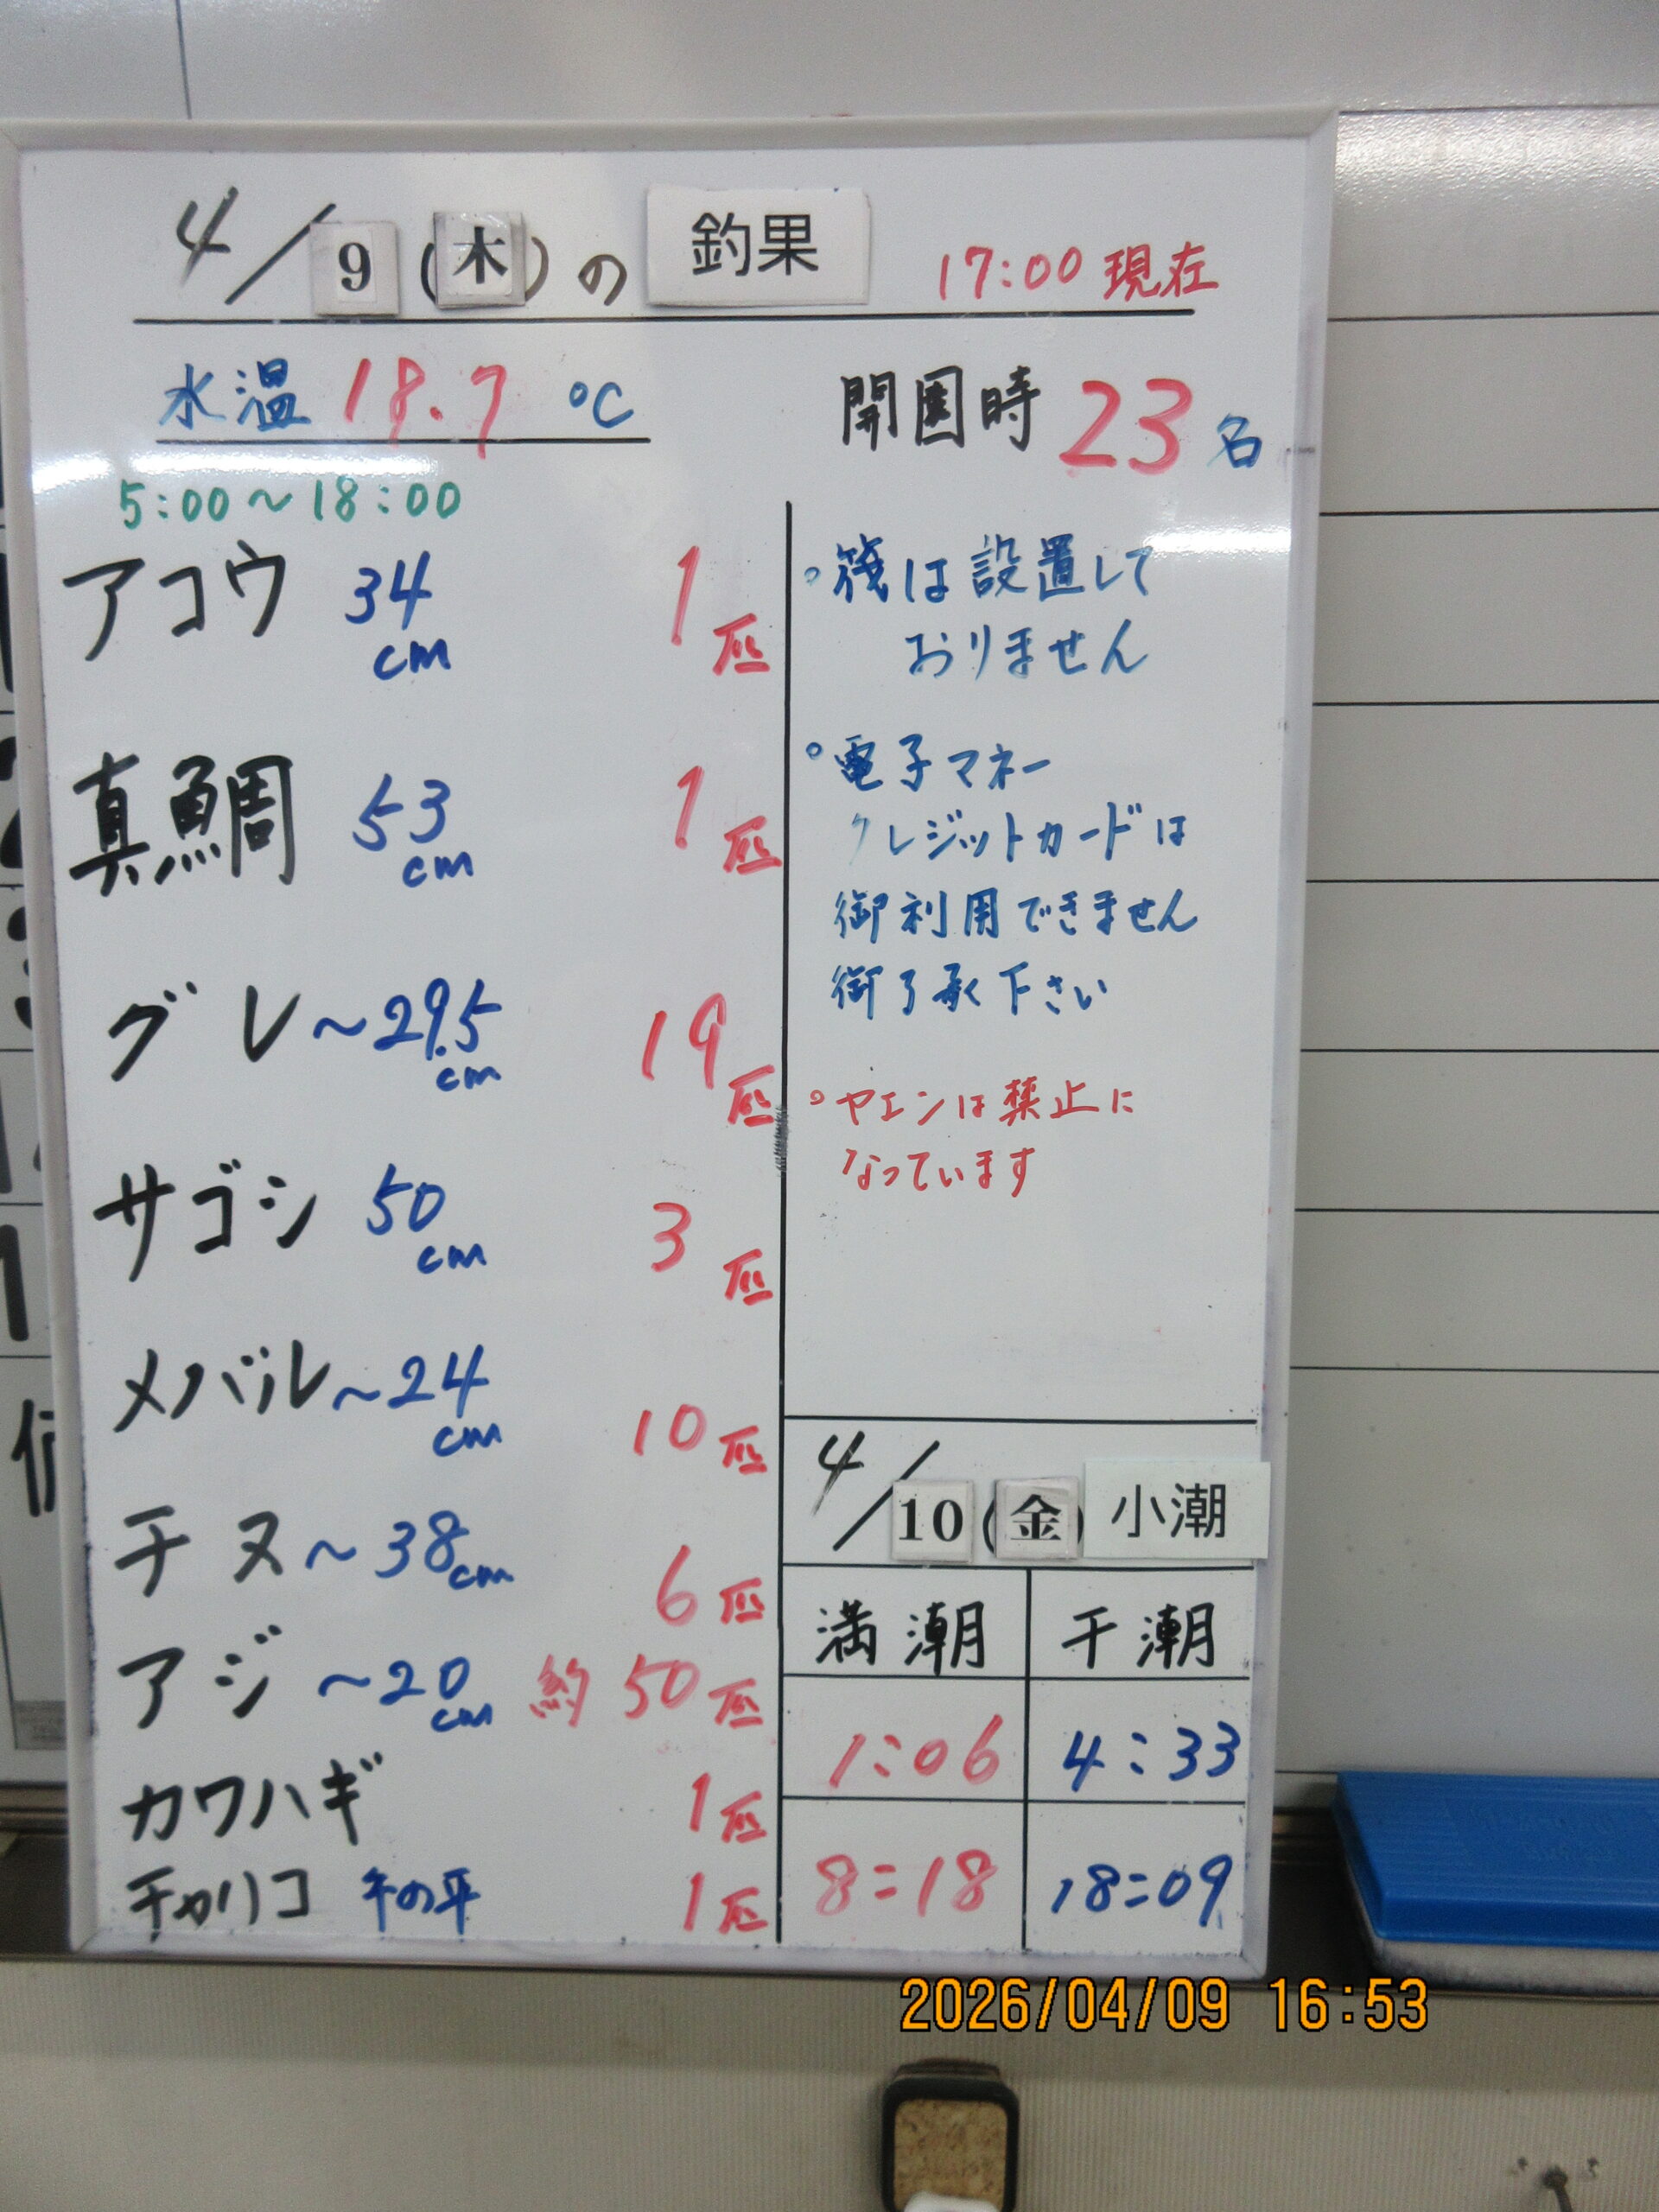 4/9(木)の 釣果 17:00 現在
水温 18.7 ℃
開園時 23 名
5:00～18:00
アコウ 34cm 1匹
真鯛 53cm 1匹
グレ ～29.5cm 19匹
サゴシ 50cm 3匹
メバル ～24cm 10匹
チヌ ～38cm 6匹
アジ ～20cm 約50匹
カワハギ 1匹
チャリコ 手の平 1匹
。筏は設置して
おりません
。電子マネー
クレジットカードは
御利用できません
御了承下さい
。ヤエンは禁止に
なっています
4/10(金) 小潮
満潮 干潮
1:06 4:33
8:18 18:09
2026/04/09 16:53